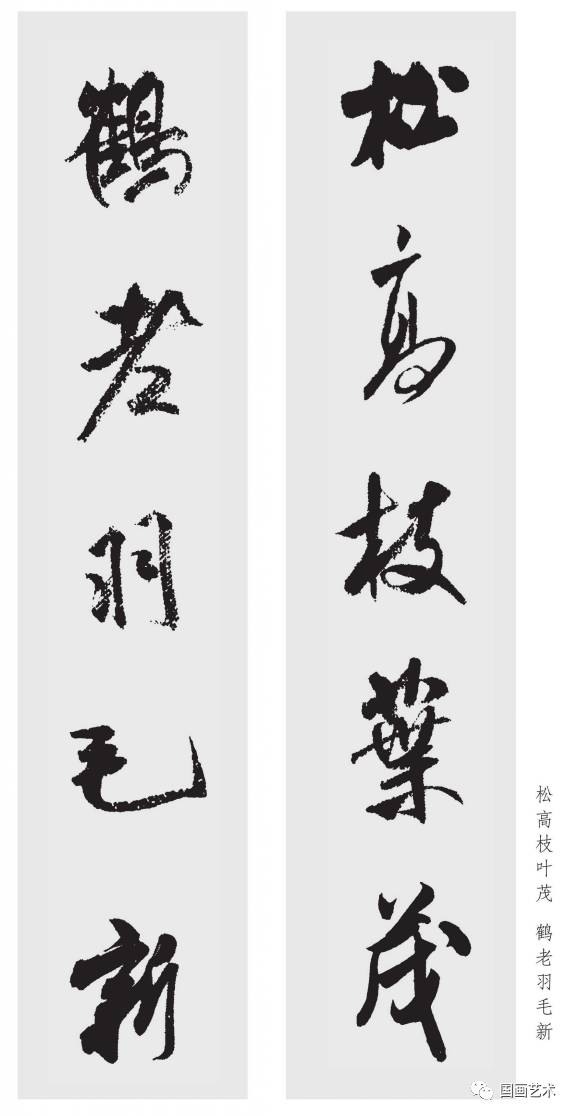 松高枝葉茂
鶴老羽毛新
松高枝叶茂 鹤老羽毛新
国画艺术